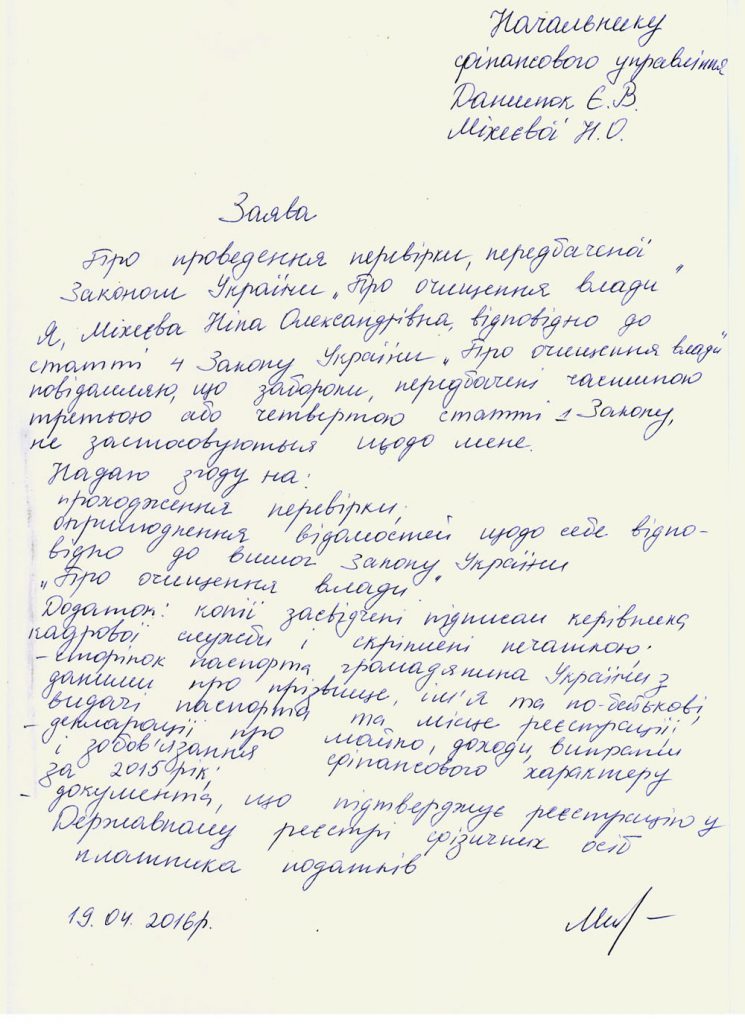 Начальнику
фінансового управління
Данилюк Є.В.
Міхеєвої Н.О.
Заява
Про проведення перевірки, передбаченої
Законом України „Про очищення влади"
Я, Міхеєва Ніна Олександрівна, відповідно до
статті 4 Закону України „Про очищення влади"
повідомляю, що заборони, передбачені частиною
третьою або четвертою статті 1 Закону,
не застосовуються щодо мене.
Надаю згоду на:
проходження перевірки;
оприлюднення відомостей щодо себе відпо-
відно до вимог Закону України
„Про очищення влади"
Додаток: копії засвідчені підписом керівника
кадрової служби і скріплені печаткою:
- сторінок паспорта громадянина України з
даними про прізвище, ім'я та по-батькові,
видачі паспорта та місце реєстрації;
- декларації про майно, доходи, витрати
і зобов'язання фінансового характеру
за 2015 рік;
- документа, що підтверджує реєстрацію у
Державному реєстрі фізичних осіб
платника податків
19.04.2016р.